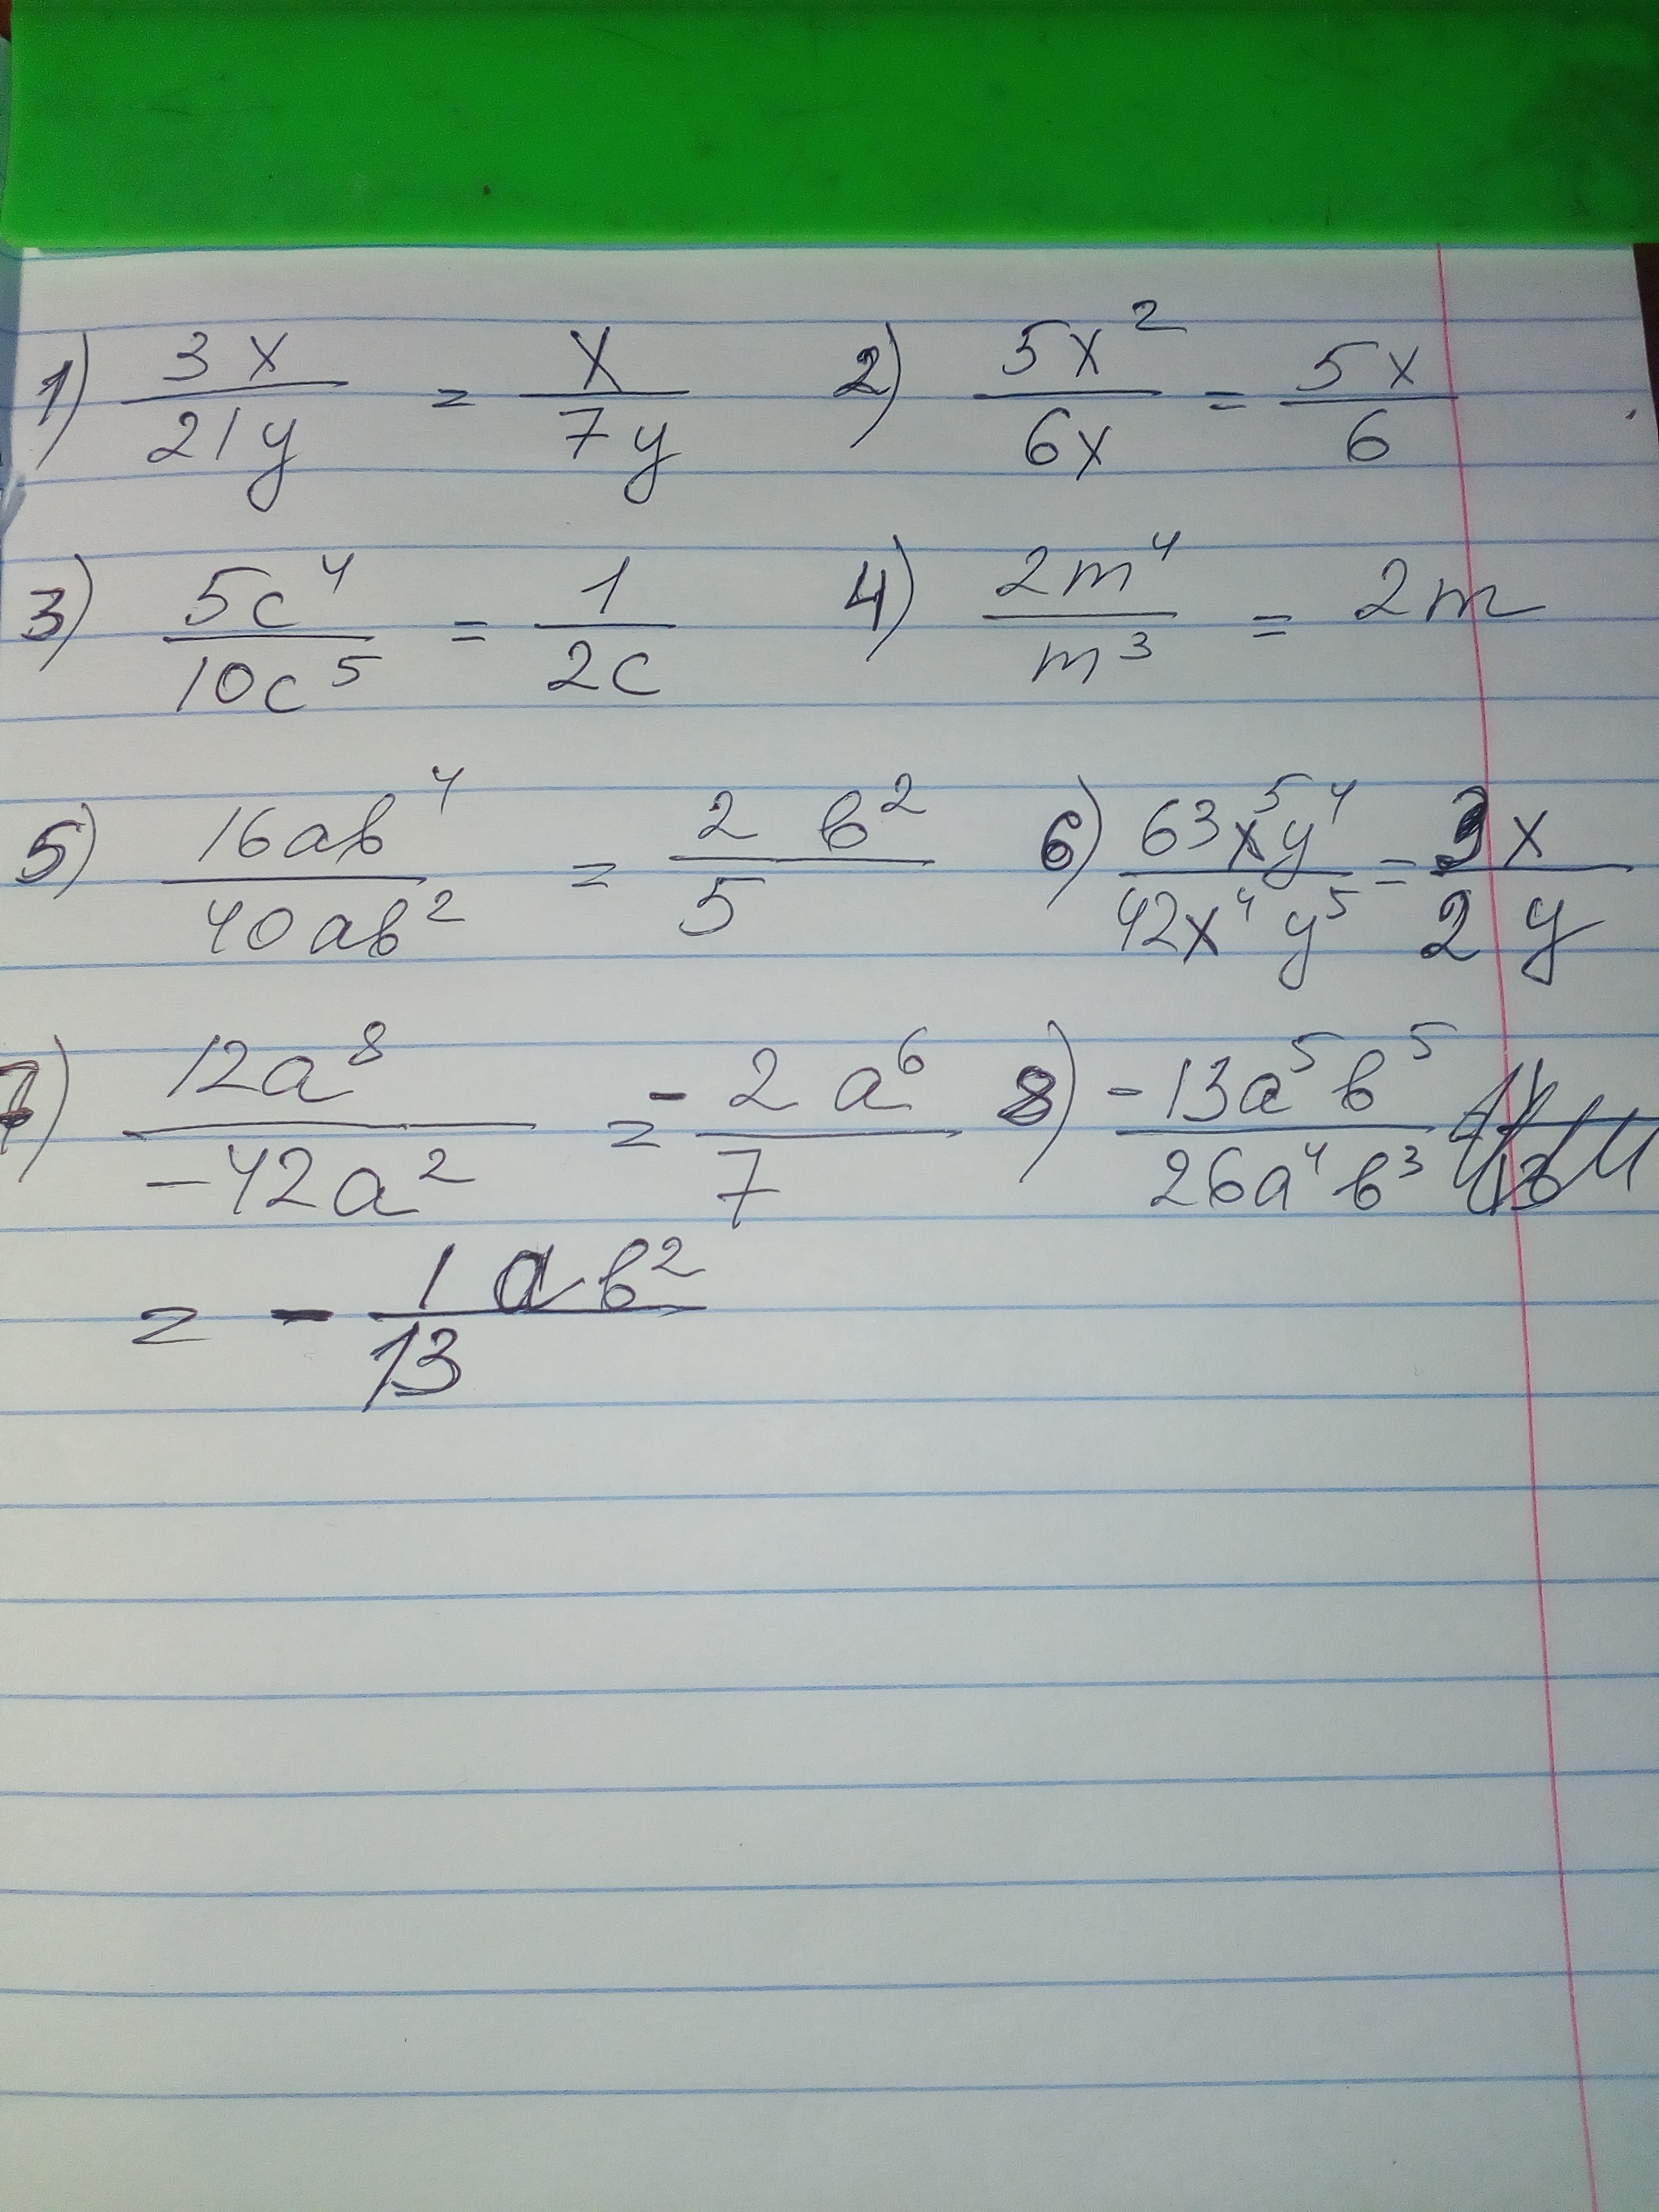 1) 3x/21y = x/7y 2) 5x²/6x = 5x/6
3) 5c⁴/10c⁵ = 1/2c 4) 2m⁴/m³ = 2m
5) 16ab⁴/40ab² = 2b²/5 6) 63x⁵y⁴/42x⁴y⁵ = 3x/2y
7) 12a⁸/-42a² = -2a⁶/7 8) -13a⁵b⁵/26a⁴b³
= - 1ab²/13